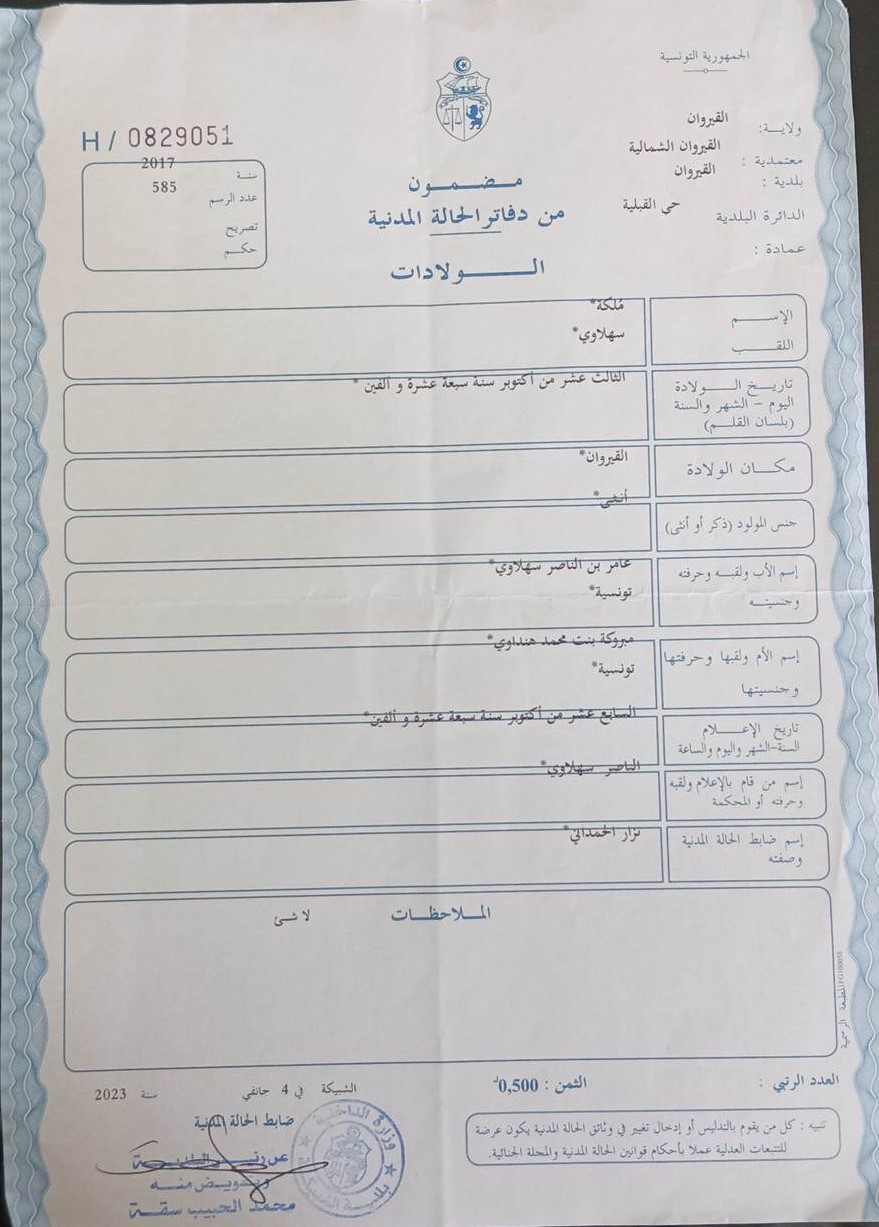 الجمهورية التونسية
ولاية: القيروان
معتمدية : القيروان الشمالية
بلدية : القيروان
الدائرة البلدية حي القبلية
عمادة :
H / 0829051
سنة 2017
عدد الرسم 585
تصريح
حكم
مضمون
من دفاتر الحالة المدنية
الولادات
الإسم مُلكة*
اللقب سهلاوي*
تاريخ الولادة
اليوم - الشهر والسنة
(بلسان القلم)
الثالث عشر من أكتوبر سنة سبعة عشرة و ألفين *
مكان الولادة القيروان*
جنس المولود (ذكر أو أنثى) أنثى*
إسم الأب ولقبه وحرفته
وجنسيته
عامر بن الناصر سهلاوي*
تونسية*
إسم الأم ولقبها وحرفتها
وجنسيتها
مبروكة بنت محمد هنداوي*
تونسية*
تاريخ الإعلام
السنة-الشهر واليوم والساعة
السابع عشر من أكتوبر سنة سبعة عشرة و ألفين*
إسم من قام بالإعلام ولقبه
وحرفته أو المحكمة
الناصر سهلاوي*
إسم ضابط الحالة المدنية
وصفته
نزار الحمداني*
الملاحظات
لا شئ
المطبعة الرسمية
العدد الرتبي :
الثمن : 0,500د
تنبيه : كل من يقوم بالتدليس أو إدخال تغيير في وثائق الحالة المدنية يكون عرضة
للتتبعات العدلية عملا بأحكام قوانين الحالة المدنية والمجلة الجنائية.
الشبيكة في 4 جانفي سنة 2023
ضابط الحالة المدنية
عن رئيس البلدية
وبتفويض منه
محمد الحبيب سقة
وزارة الداخلية
بلدية الشبيكة